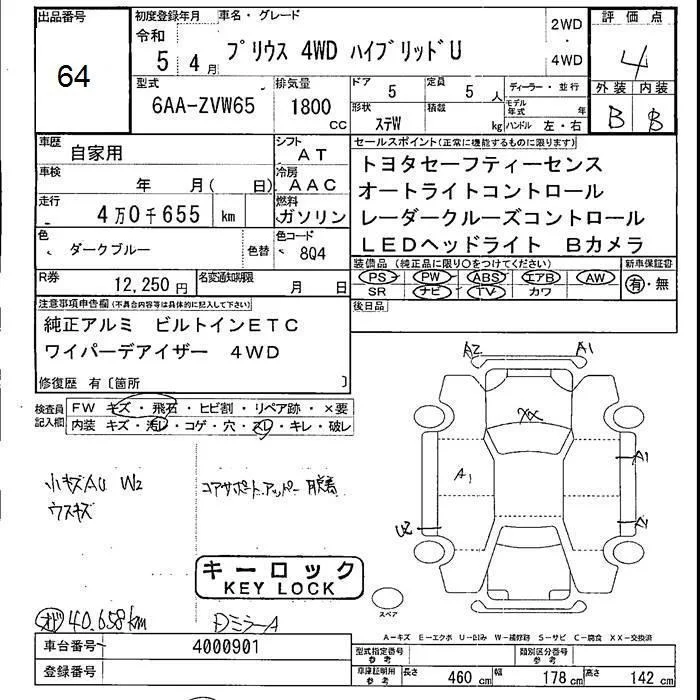 出品番号 初度登録年月 車名・グレード 2WD・4WD 評価点
64 令和 5年 4月 プリウス 4WD ハイブリッドU 4
外装 内装
B B
型式 排気量 ドア 定員 ディーラー・並行
6AA-ZVW65 1800 CC 5 5人
形状 積載 モデル年式 年
ステW kg ハンドル 左・右
車歴 自家用 シフト AT
車検 年 月( 日) 冷房 AAC
走行 4万0千655 km 燃料 ガソリン
色 ダークブルー 色替 色コード 8Q4
R券 12,250円 名変通知期限 月 日
セールスポイント(正常に機能するものに限ります)
トヨタセーフティーセンス
オートライトコントロール
レーダークルーズコントロール
LEDヘッドライト Bカメラ
装備品(純正品に限り○をつけてください) 新車保証書
PS PW ABS エアB AW 有・無
SR ナビ TV カワ
後日品
注意事項申告欄(不具合内容等は具体的に記入して下さい)
純正アルミ ビルトインETC
ワイパーデアイザー 4WD
修復歴 有〔箇所 〕
検査員記入欄 FW キズ・飛石・ヒビ割・リペア跡・×要
内装 キズ・汚レ・コゲ・穴・スレ・キレ・破レ
A2 A1
XX
A1
A1
U2
小キズAU W2 コアサポートアッパー 脱着
ウスキズ
キーロック
KEY LOCK
スペア
40.658km DミラーA
A-キズ E-エクボ U-凹み W-補修跡 S-サビ C-腐食 XX-交換済
車台番号 4000901
登録番号
型式指定番号 参考 類別区分番号 参考
車庫証明用 参考 長さ 460 cm 幅 178 cm 高さ 142 cm